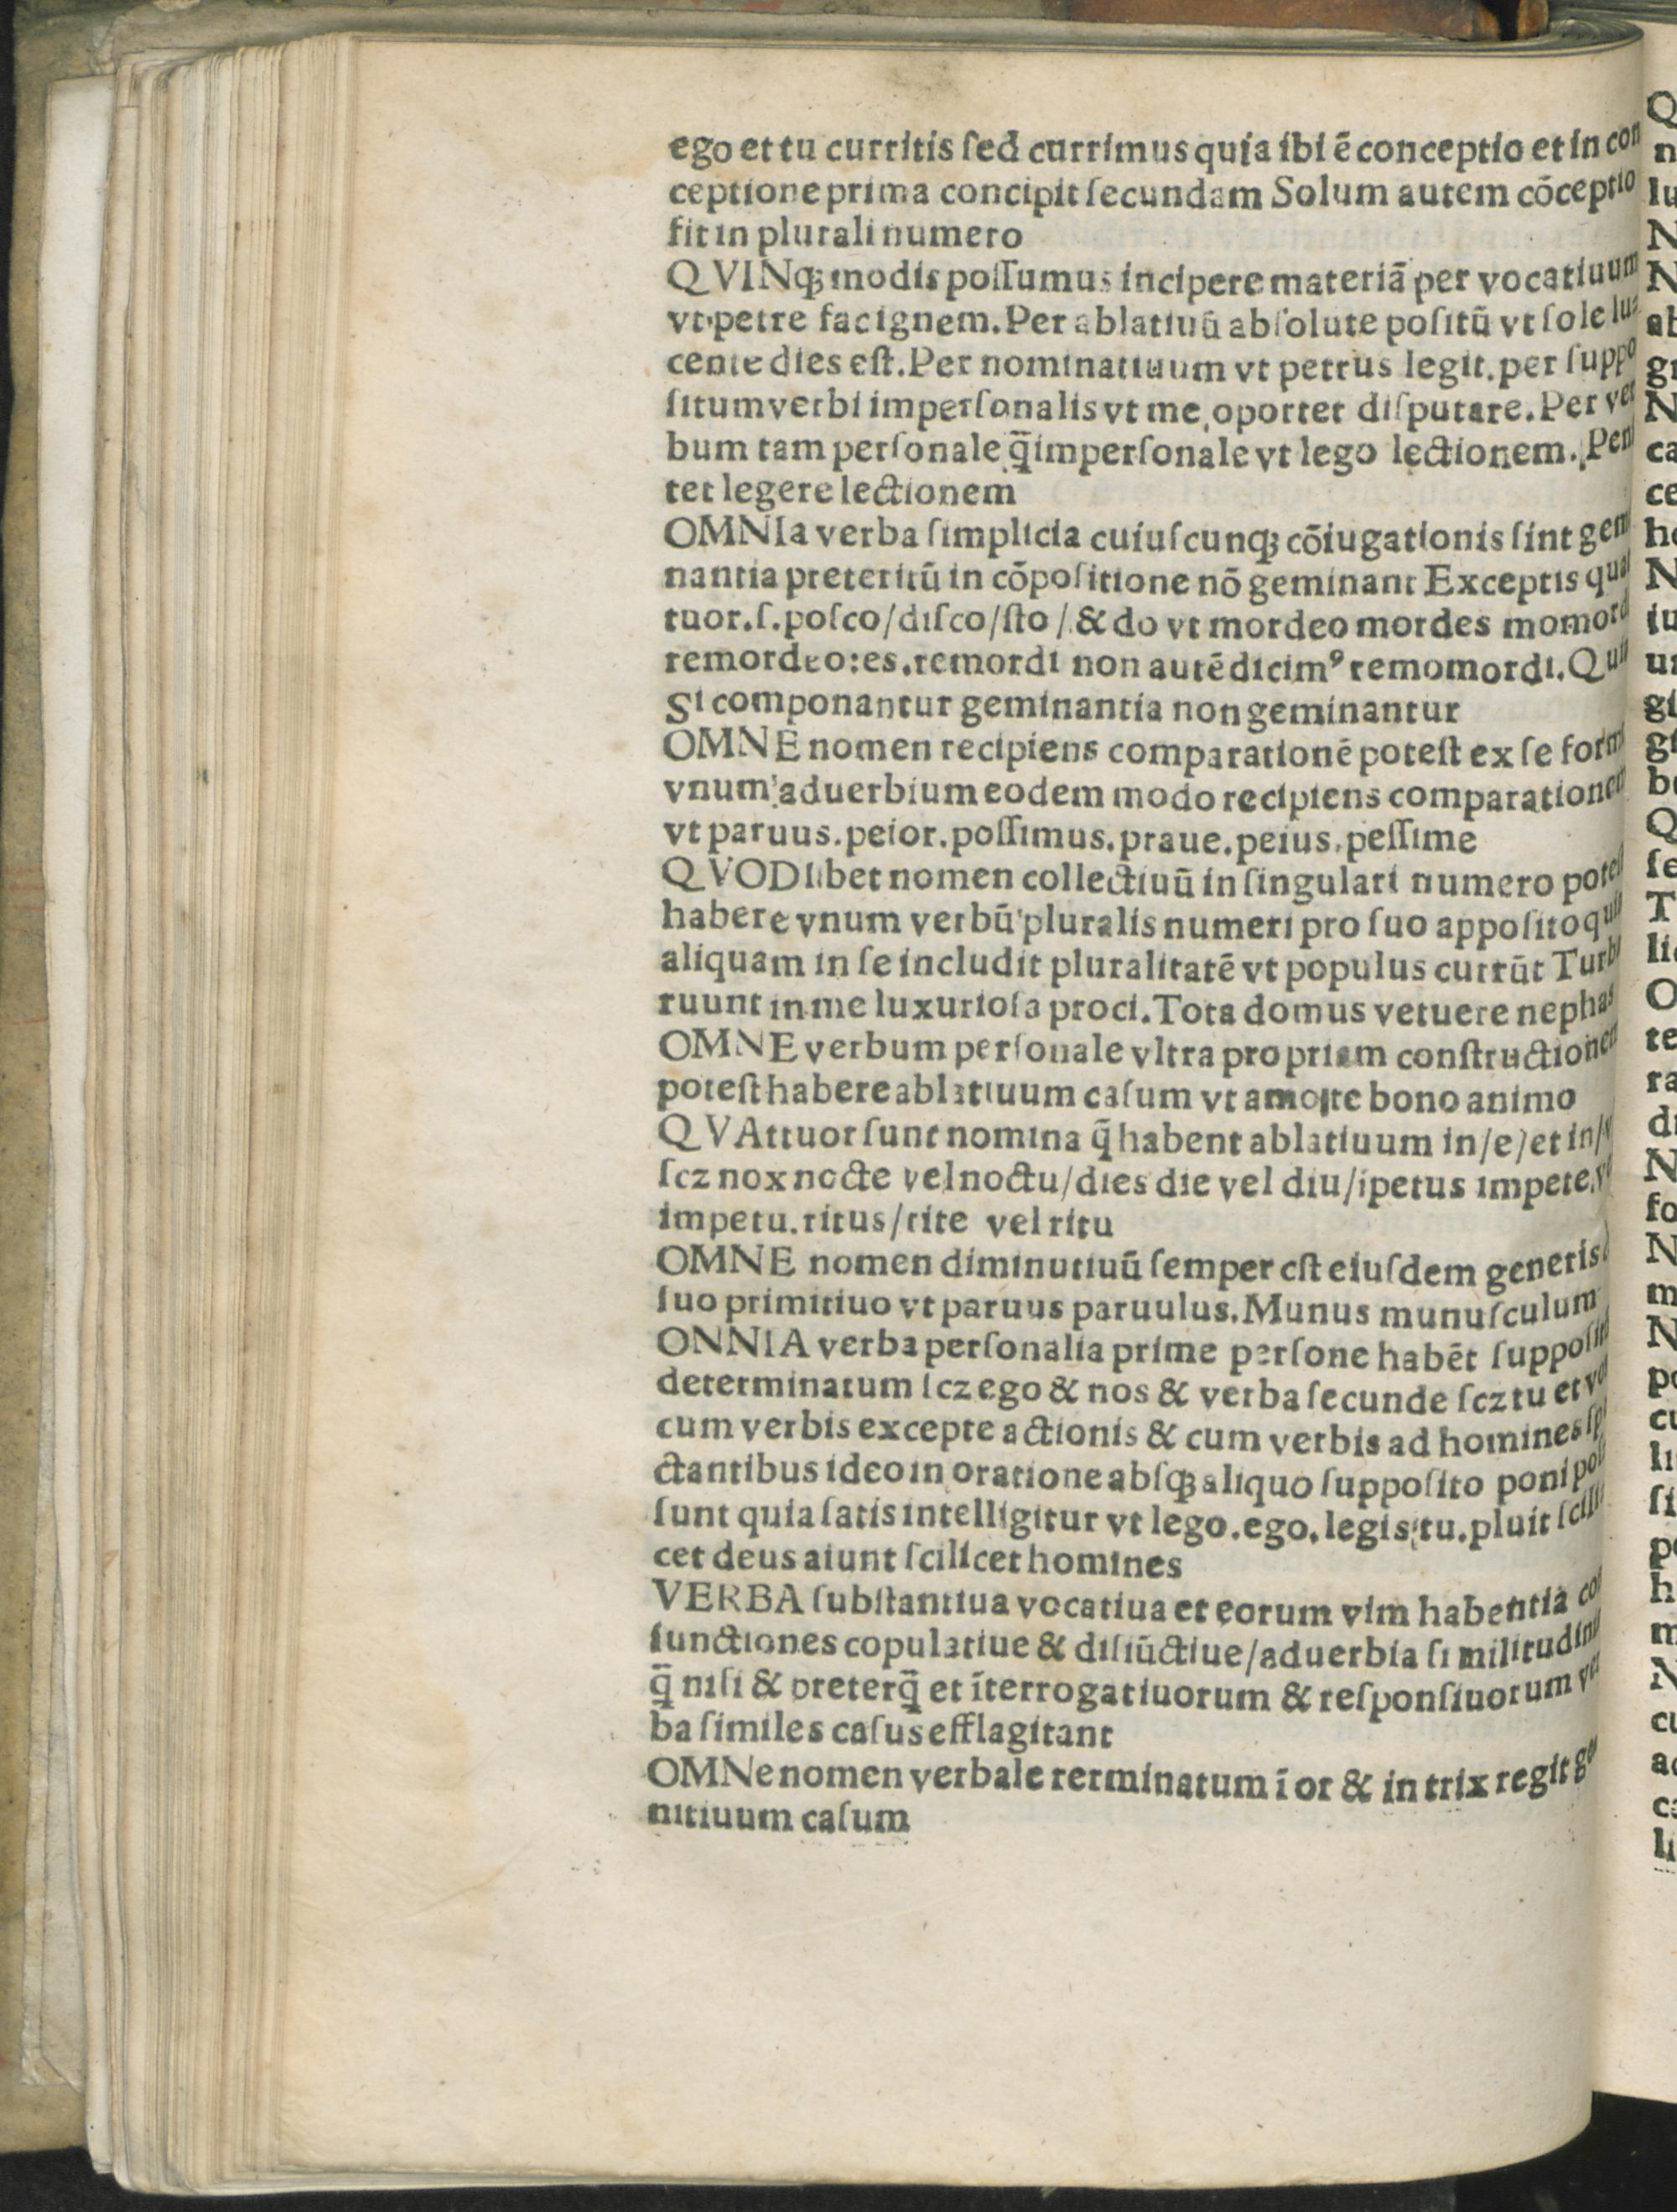 ego et tu curritis ſed currimus quia ibi ē conceptio et in con
ceptione prima concipit ſecundam Solum autem cōceptio
fit in plurali numero
QVINqꝫ modis poſſumus incipere materiā per vocatiuum
vt petre fac ignem. Per ablatiuū abſolute poſitū vt ſole lu
cente dies eſt. Per nominatiuum vt petrus legit. per ſuppo
ſitum verbi imperſonalis vt me oportet diſputare. Per ver
bum tam perſonale q̄ imperſonale vt lego lectionem. Peni
tet legere lectionem
OMNIa verba ſimplicia cuiuſcunqꝫ cōiugationis ſint gemi
nantia preteritū in cōpoſitione nō geminant Exceptis quat
tuor. ſ. poſco/diſco/ſto/& do vt mordeo mordes momordi
remordeo:es.remordi non autē dicimꝰ remomordi.
Si componantur geminantia non geminantur
OMNE nomen recipiens comparationē poteſt ex ſe form
vnum aduerbium eodem modo recipiens comparationem
vt paruus.peior.poſſimus.praue.peius.peſſime
QVODlibet nomen collectiuū in ſingulari numero poteſt
habere vnum verbū pluralis numeri pro ſuo appoſito quia
aliquam in ſe includit pluralitatē vt populus currūt Turba
ruunt in me luxurioſa proci. Tota domus vetuere nephas
OMNE verbum perſonale vltra propriam conſtructionem
poteſt habere ablatiuum caſum vt amo te bono animo
QVAttuor ſunt nomina q̄ habent ablatiuum in/e/et in/
ſcz nox nocte vel noctu/dies die vel diu/ipetus impete.
impetu.ritus/rite vel ritu
OMNE nomen diminutiuū ſemper eſt eiuſdem generis
ſuo primitiuo vt paruus paruulus. Munus munuſculum
ONNIA verba perſonalia prime perſone habēt ſuppoſit
determinatum ſcz ego & nos & verba ſecunde ſcz tu et vo
cum verbis excepte actionis & cum verbis ad homines ſpe
ctantibus ideo in oratione abſqꝫ aliquo ſuppoſito poni poſ
ſunt quia ſatis intelligitur vt lego.ego.legis.tu.pluit ſcili
cet deus aiunt ſcilicet homines
VERBA ſubſtantiua vocatiua et eorum vim habentia con
iunctiones copulatiue & diſiūctiue/aduerbia ſimilitudinis
q̄ niſi & preterq̄ et īterrogatiuorum & reſponſiuorum ver
ba ſimiles caſus efflagitant
OMNe nomen verbale terminatum ī or & in trix regit ge
nitiuum caſum